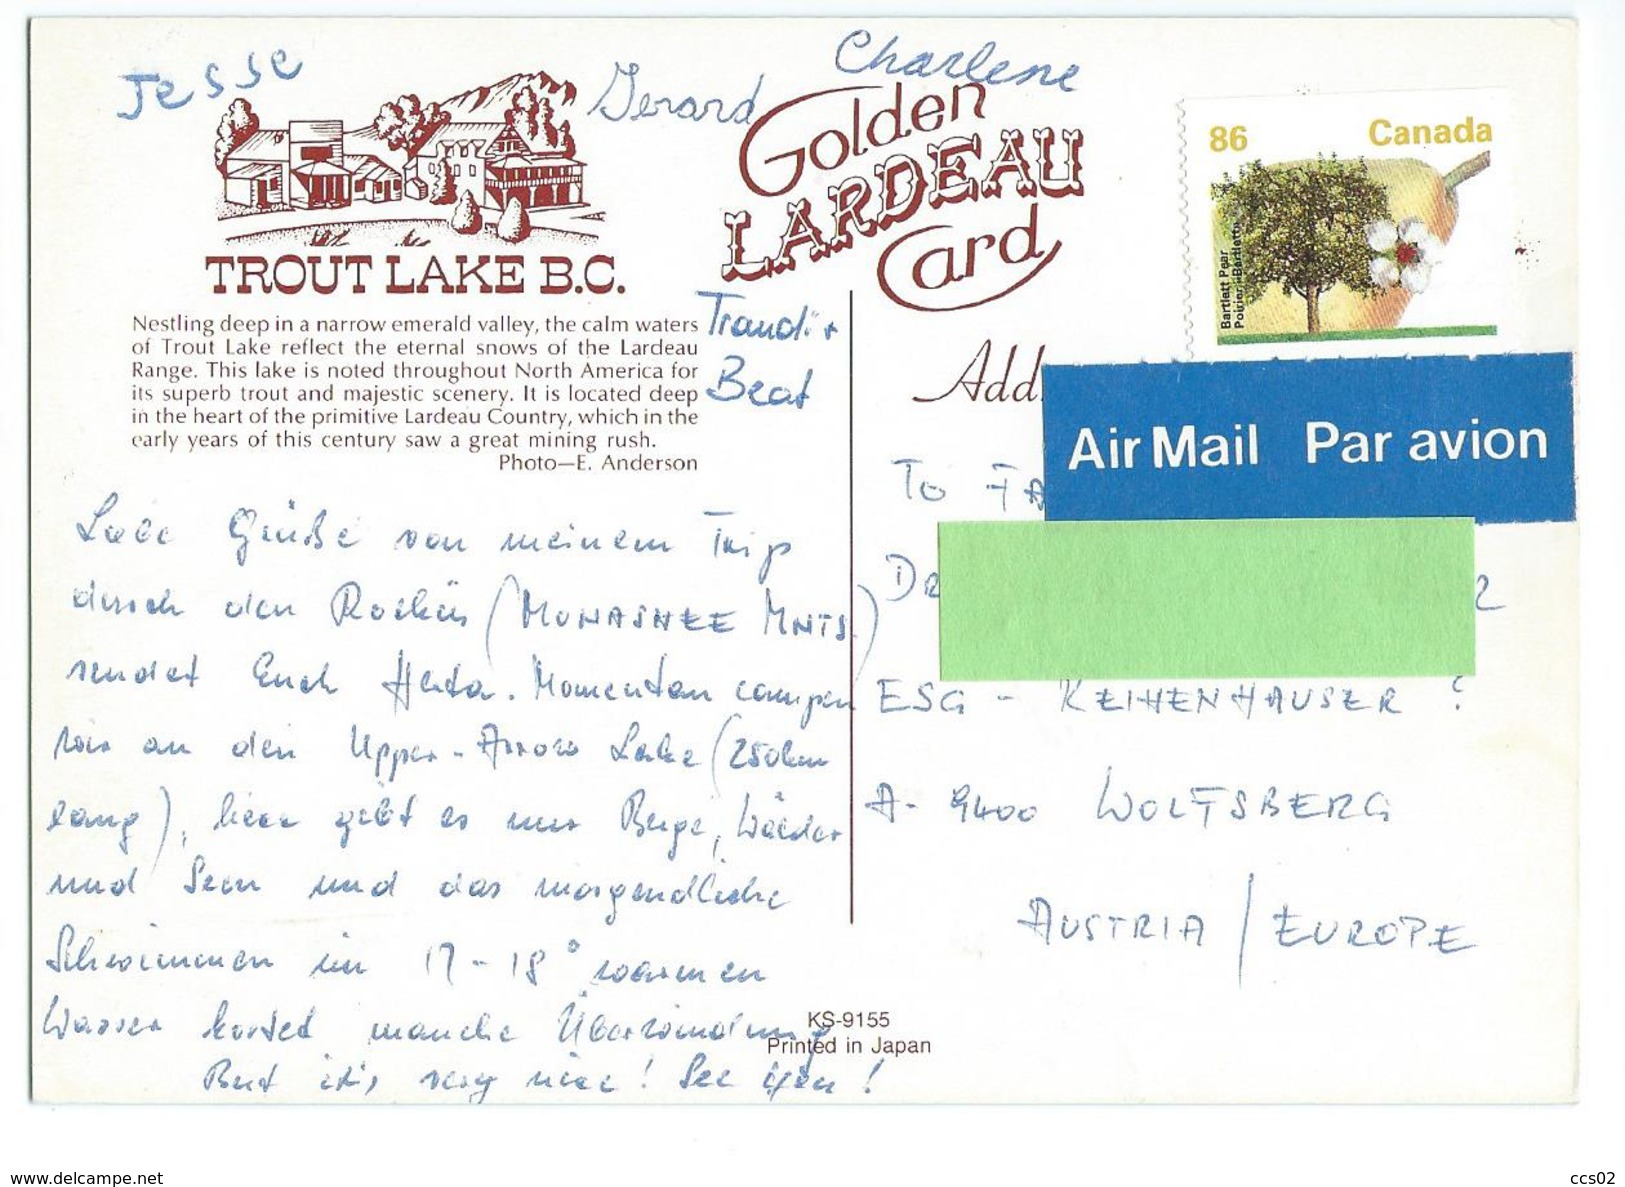 Jesse
Gerard
Charlene
Golden
LARDEAU
Card
86 Canada
Bartlett Pear
Poirier Bartlett
TROUT LAKE B.C.
Nestling deep in a narrow emerald valley, the calm waters
of Trout Lake reflect the eternal snows of the Lardeau
Range. This lake is noted throughout North America for
its superb trout and majestic scenery. It is located deep
in the heart of the primitive Lardeau Country, which in the
early years of this century saw a great mining rush.
Photo—E. Anderson
Traudi +
Beat
Liebe Grüße von meinem Trip
durch den Rockies (MONASHEE MNTS.)
sendet Euch Herta. Momentan campen
wir an den Upper-Arrow Lake (250km
lang), hier gibt es nur Berge, Wälder
und Seen und das morgendliche
Schwimmen im 17-18° warmen
Wasser kostet manche Überwindung
But it's very nice! See you!
Add
Air Mail Par avion
TO FA
DR
ESG - REIHENHÄUSER
A-9400 WOLFSBERG
AUSTRIA / EUROPE
KS-9155
Printed in Japan
www.delcampe.net
ccs02